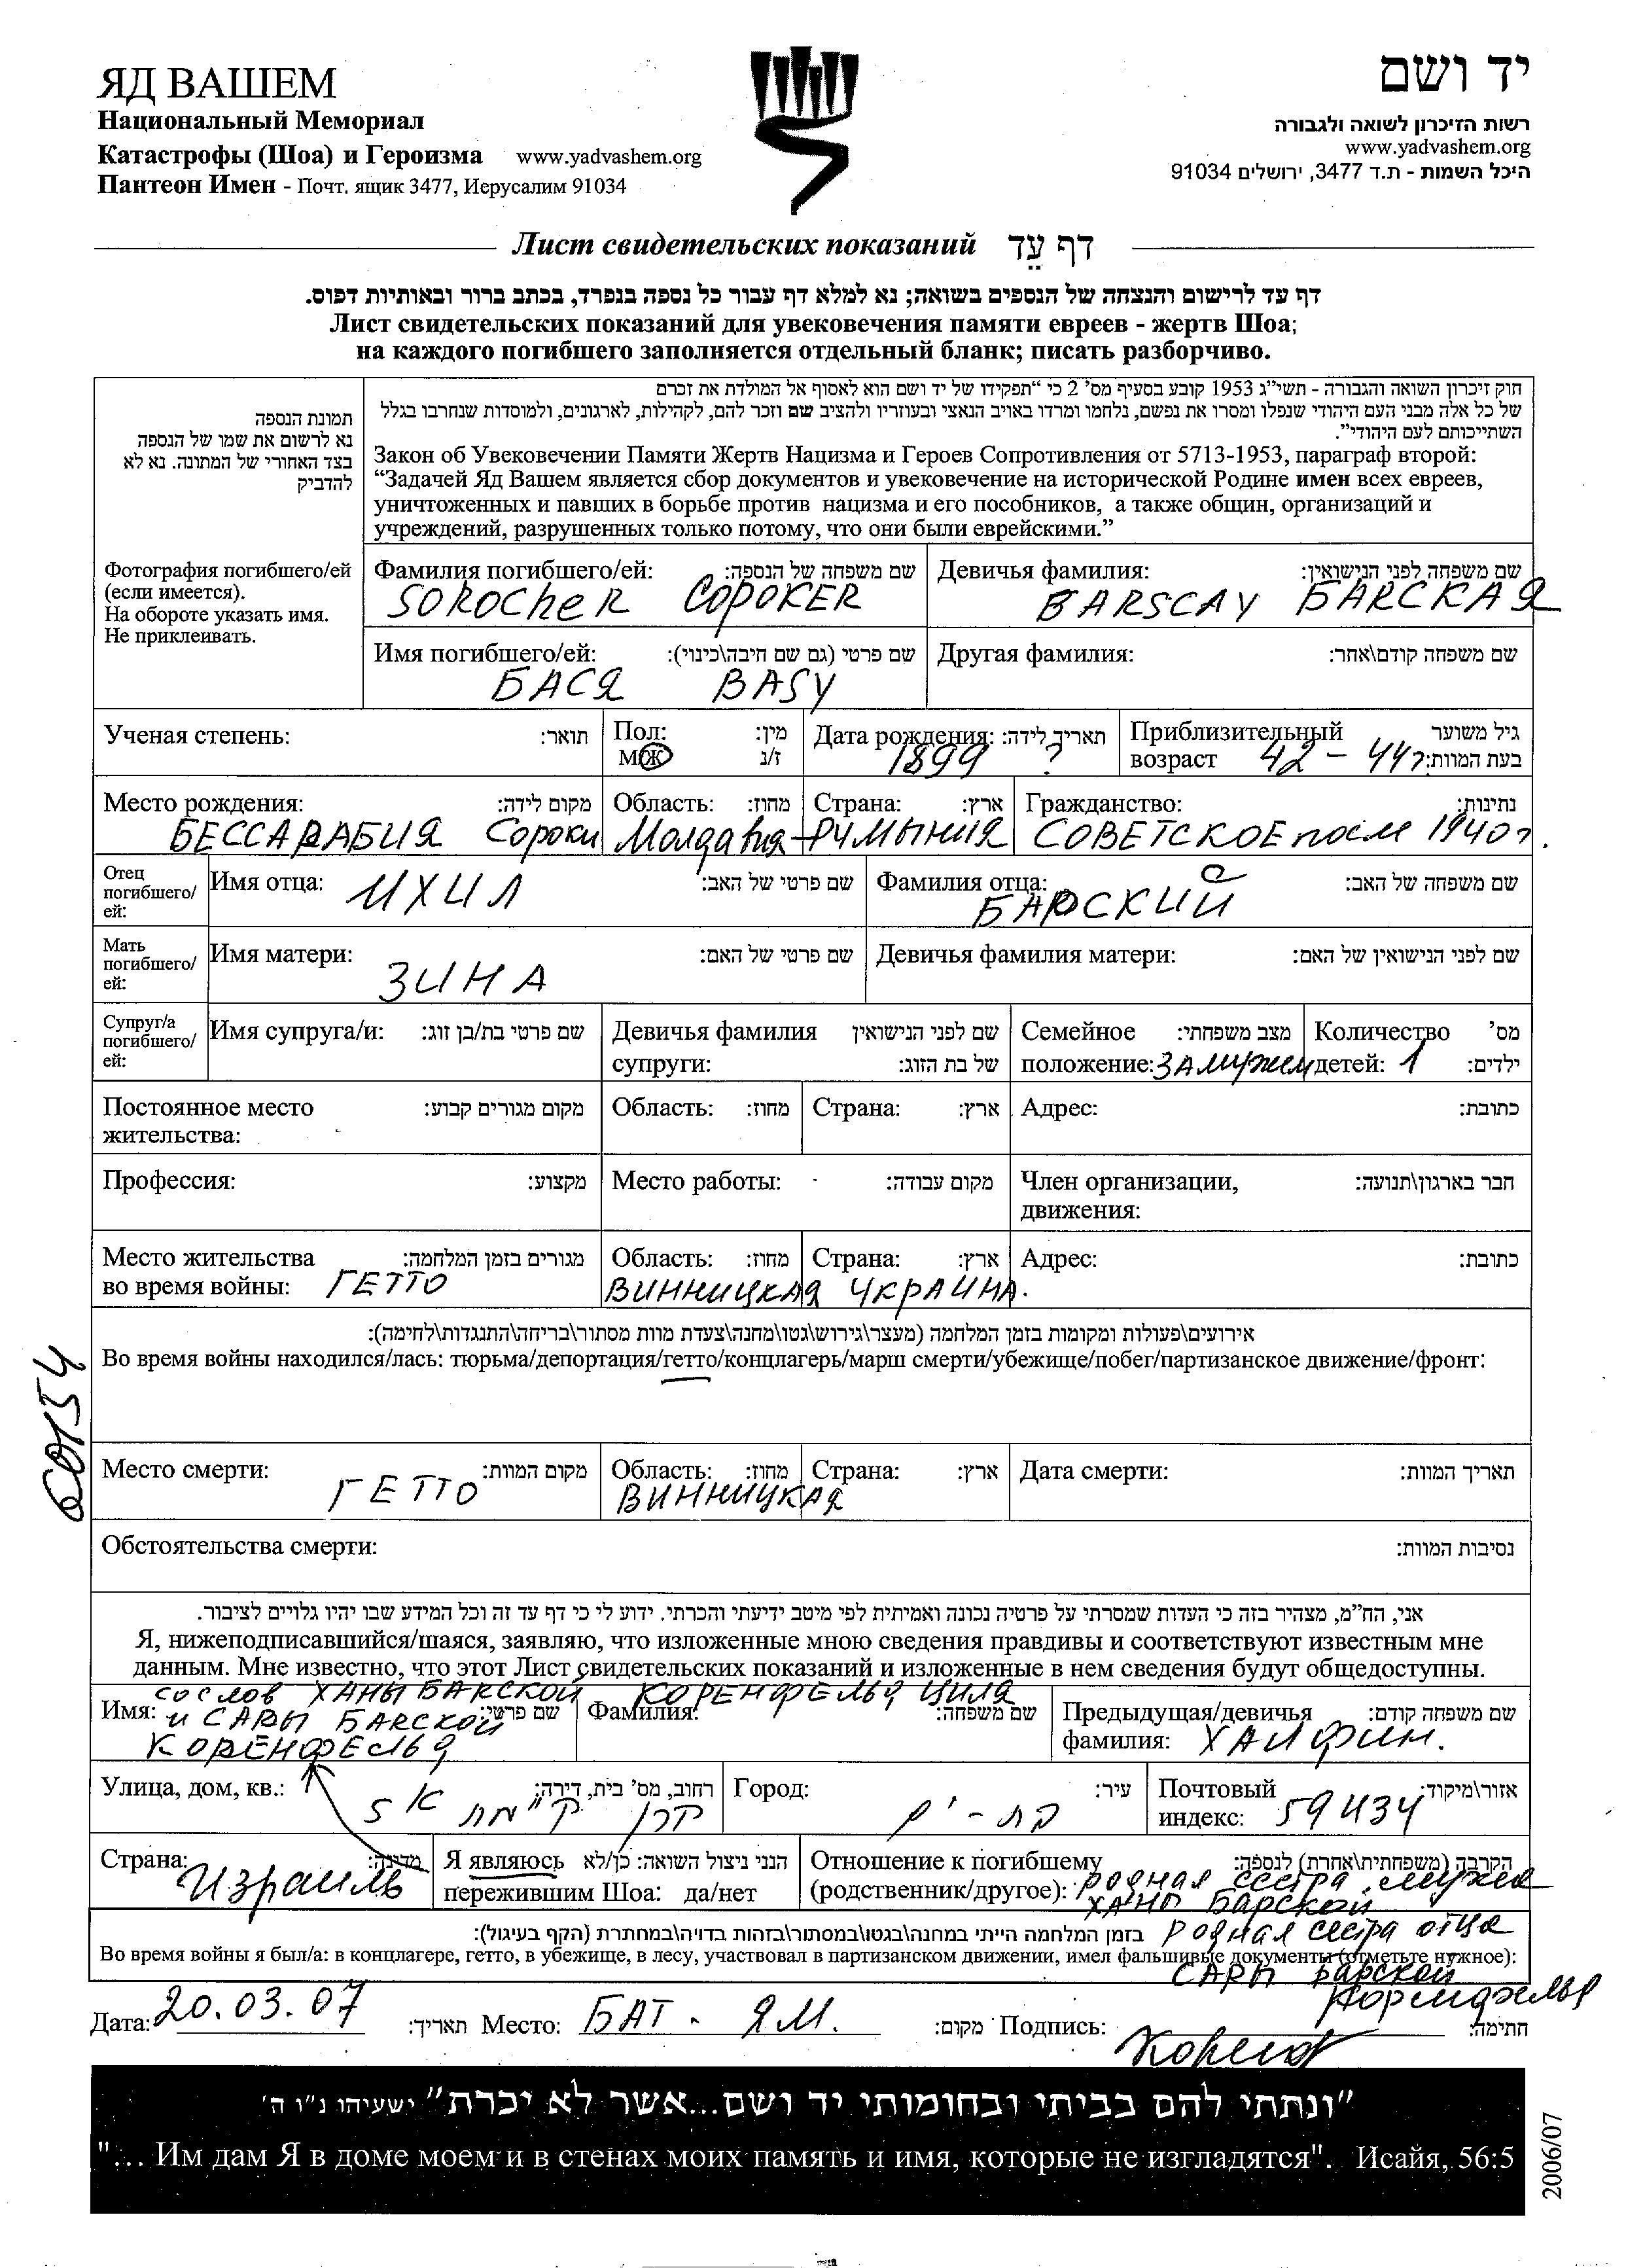 ЯД ВАШЕМ
Национальный Мемориал
Катастрофы (Шоа) и Героизма www.yadvashem.org
Пантеон Имен - Почт. ящик 3477, Иерусалим 91034
יד ושם
רשות הזיכרון לשואה ולגבורה
www.yadvashem.org
היכל השמות - ת.ד 3477, ירושלים 91034
Лист свидетельских показаний דף עֵד
דף עד לרישום והנצחה של הנספים בשואה; נא למלא דף עבור כל נספה בנפרד, בכתב ברור ובאותיות דפוס.
Лист свидетельских показаний для увековечения памяти евреев - жертв Шоа;
на каждого погибшего заполняется отдельный бланк; писать разборчиво.
תמונת הנספה
נא לרשום את שמו של הנספה
בצד האחורי של המתונה. נא לא
להדביק
Фотография погибшего/ей
(если имеется).
На обороте указать имя.
Не приклеивать.
חוק זיכרון השואה והגבורה - תשי"ג 1953 קובע בסעיף מס' 2 כי "תפקידו של יד ושם הוא לאסוף אל המולדת את זכרם
של כל אלה מבני העם היהודי שנפלו ומסרו את נפשם, נלחמו ומרדו באויב הנאצי ובעוזריו ולהציב שם וזכר להם, לקהילות, לארגונים, ולמוסדות שנחרבו בגלל
השתייכותם לעם היהודי".
Закон об Увековечении Памяти Жертв Нацизма и Героев Сопротивления от 5713-1953, параграф второй:
"Задачей Яд Вашем является сбор документов и увековечение на исторической Родине имен всех евреев,
уничтоженных и павших в борьбе против нацизма и его пособников, а также общин, организаций и
учреждений, разрушенных только потому, что они были еврейскими."
Фамилия погибшего/ей: שם משפחה של הנספה: Девичья фамилия: שם משפחה לפני הנישואין:
SOROCheR СОРОКЕR BARSCAY БАРСКАЯ
Имя погибшего/ей: שם פרטי (גם שם חיבה\כינוי): Другая фамилия: שם משפחה קודם\אחר:
БАСЯ BASY
Ученая степень: תואר: Пол: מין: Дата рождения: תאריך לידה: Приблизительный גיל משוער
М/Ж ז/נ 1899 ? возраст 42 - 44? בעת המוות:
Место рождения: מקום לידה: Область: מחוז: Страна: ארץ: Гражданство: נתינות:
БЕССАРАБИЯ Сороки Молдавия - РУМЫНИЯ СОВЕТСКОЕ после 1940г.
Отец погибшего/ей: Имя отца: ИХИЛ שם פרטי של האב: Фамилия отца: БАРСКИЙ שם משפחה של האב:
Мать погибшего/ей: Имя матери: ЗИНА שם פרטי של האם: Девичья фамилия матери: שם לפני הנישואין של האם:
Супруг/а погибшего/ей: Имя супруга/и: שם פרטי בת/בן זוג: Девичья фамилия שם לפני הנישואין Семейное מצב משפחתי: Количество מס'
супруги: של בת הזוג: положение: ЗАмужем детей: 1 ילדים:
Постоянное место מקום מגורים קבוע: Область: מחוז: Страна: ארץ: Адрес: כתובת:
жительства:
Профессия: מקצוע: Место работы: מקום עבודה: Член организации, חבר בארגון\תנועה:
движения:
Место жительства מגורים בזמן המלחמה: Область: מחוז: Страна: ארץ: Адрес: כתובת:
во время войны: ГЕТТО ВИННИЦКАЯ УКРАИНА.
אירועים\פעולות ומקומות בזמן המלחמה (מעצר\גירוש\גטו\מחנה\צעדת מוות מסתור\בריחה\התנגדות\לחימה):
Во время войны находился/лась: тюрьма/депортация/гетто/концлагерь/марш смерти/убежище/побег/партизанское движение/фронт:
60154
Место смерти: מקום המוות: Область: מחוז: Страна: ארץ: Дата смерти: תאריך המוות:
ГЕТТО ВИННИЦКАЯ
Обстоятельства смерти: נסיבות המוות:
אני, הח"מ, מצהיר בזה כי העדות שמסרתי על פרטיה נכונה ואמיתית לפי מיטב ידיעתי והכרתי. ידוע לי כי דף עד זה וכל המידע שבו יהיו גלויים לציבור.
Я, нижеподписавшийся/шаяся, заявляю, что изложенные мною сведения правдивы и соответствуют известным мне
данным. Мне известно, что этот Лист свидетельских показаний и изложенные в нем сведения будут общедоступны.
СО СЛОВ ХАНЫ БАРСКОЙ КОРЕНФЕЛЬД ЦИЛЯ
Имя: и САРЫ БАРСКОЙ שם פרטי: Фамилия: שם משפחה: Предыдущая/девичья שם משפחה קודם:
КОРЕНФЕЛЬД фамилия: ХАИФИН.
Улица, дом, кв.: רחוב, מס' בית, דירה: Город: עיר: Почтовый אזור\מיקוד:
קרן ק"מת 5 א בת-ים индекс: 59434
Страна: Израиль מדינה: Я являюсь הנני ניצול השואה: כן/לא Отношение к погибшему הקרבה (משפחתית\אחרת) לנספה:
пережившим Шоа: да/нет (родственник/другое): родная сестра мужа
ХАНЫ БАРСКОЙ
בזמן המלחמה הייתי במחנה\בגטו\במסתור\בזהות בדויה\במחתרת (הקף בעיגול): родная сестра отца
Во время войны я был/а: в концлагере, гетто, в убежище, в лесу, участвовал в партизанском движении, имел фальшивые документы (отметьте нужное):
САРЫ Барской
Дата: 20.03.07 תאריך: Место: БАТ - ЯМ. מקום: Подпись: חתימה:
"ונתתי להם בביתי ובחומותי יד ושם...אשר לא יכרת" ישעיהו נ"ו ה'
"... Им дам Я в доме моем и в стенах моих память и имя, которые не изгладятся". Исайя, 56:5
2006/07